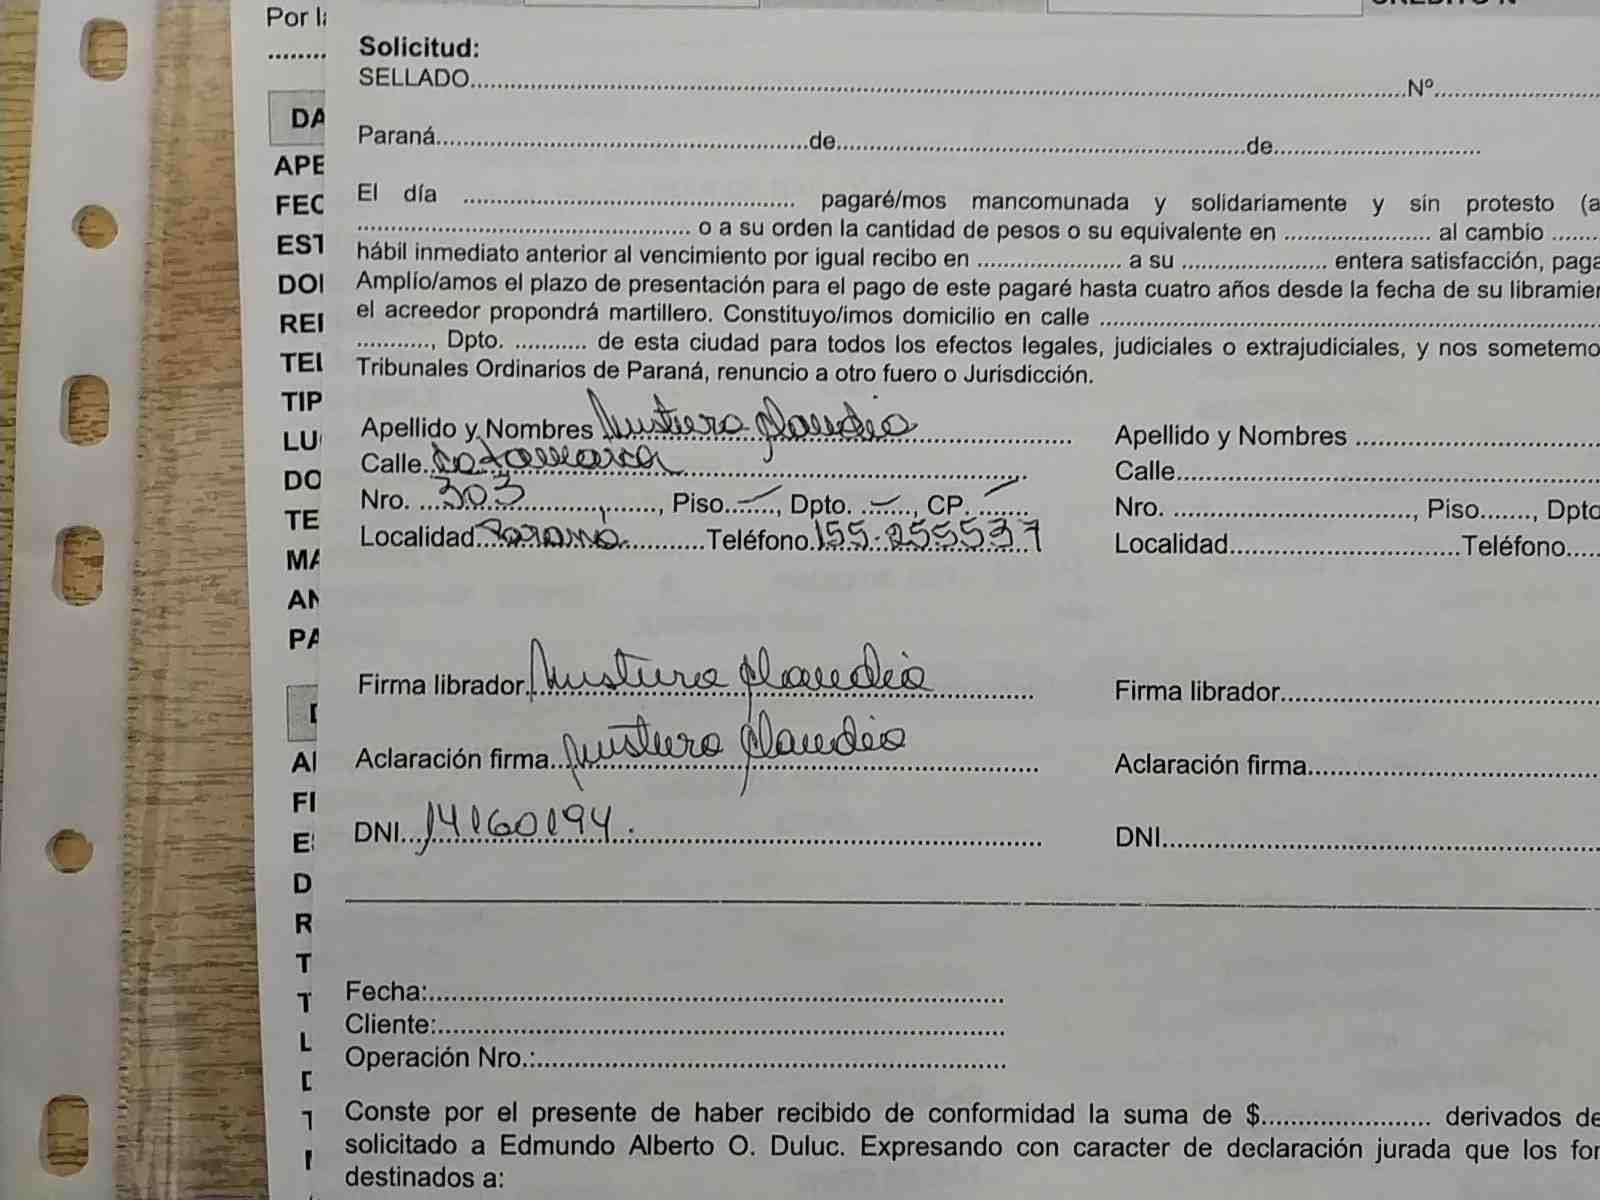 Por la
Solicitud:
SELLADO.....Nº.....
Paraná.....de.....de.....
El día ..... pagaré/mos mancomunada y solidariamente y sin protesto (a
..... o a su orden la cantidad de pesos o su equivalente en ..... al cambio .....
hábil inmediato anterior al vencimiento por igual recibo en ..... a su ..... entera satisfacción, paga
Amplío/amos el plazo de presentación para el pago de este pagaré hasta cuatro años desde la fecha de su libramier
el acreedor propondrá martillero. Constituyo/imos domicilio en calle .....
....., Dpto. ..... de esta ciudad para todos los efectos legales, judiciales o extrajudiciales, y nos sometemo
Tribunales Ordinarios de Paraná, renuncio a otro fuero o Jurisdicción.
Apellido y Nombres Claudia
Calle Catamarca
Nro. 303, Piso — Dpto. —, CP. —
Localidad Paraná Teléfono 155-255537
Firma librador Claudia
Aclaración firma Claudia
DNI 14160194.
Apellido y Nombres .....
Calle.....
Nro. ....., Piso......, Dpto
Localidad.....Teléfono.....
Firma librador.....
Aclaración firma.....
DNI.....
Fecha:.....
Cliente:.....
Operación Nro.:.....
Conste por el presente de haber recibido de conformidad la suma de $..... derivados de
solicitado a Edmundo Alberto O. Duluc. Expresando con caracter de declaración jurada que los for
destinados a:
DA
APE
FEC
EST
DOI
REI
TEL
TIP
LU
DO
TE
MA
AN
PA